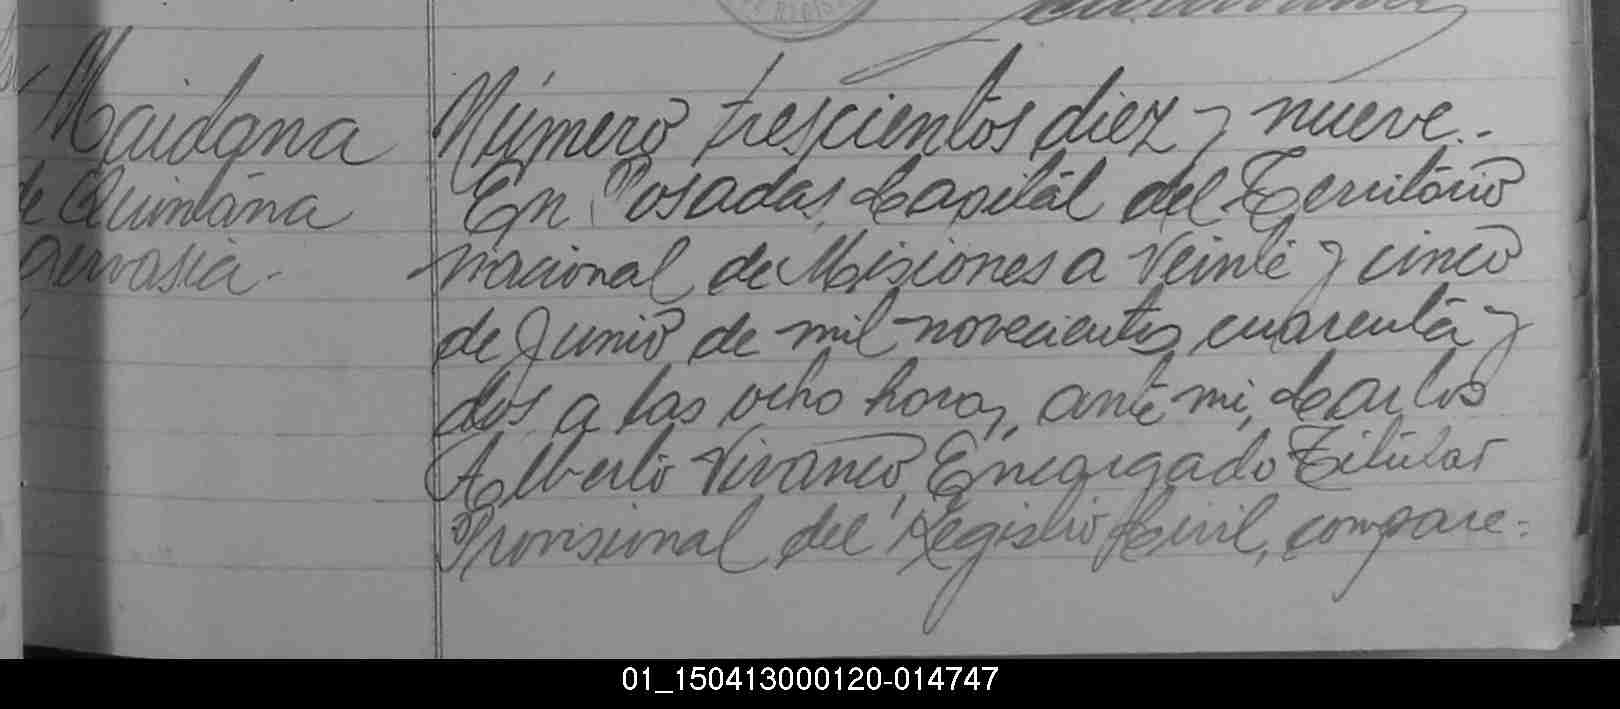 Maidana
de Quintana
Gervasia.
Número trescientos diez y nueve.-
En Posadas, Capital del Territorio
nacional de Misiones a Veinte y cinco
de Junio de mil novecientos cuarenta y
dos a las ocho horas, ante mi, Carlos
Alberto Vivanco, Encargado Titular
Provisional del Registro Civil, compare=
01_150413000120-014747